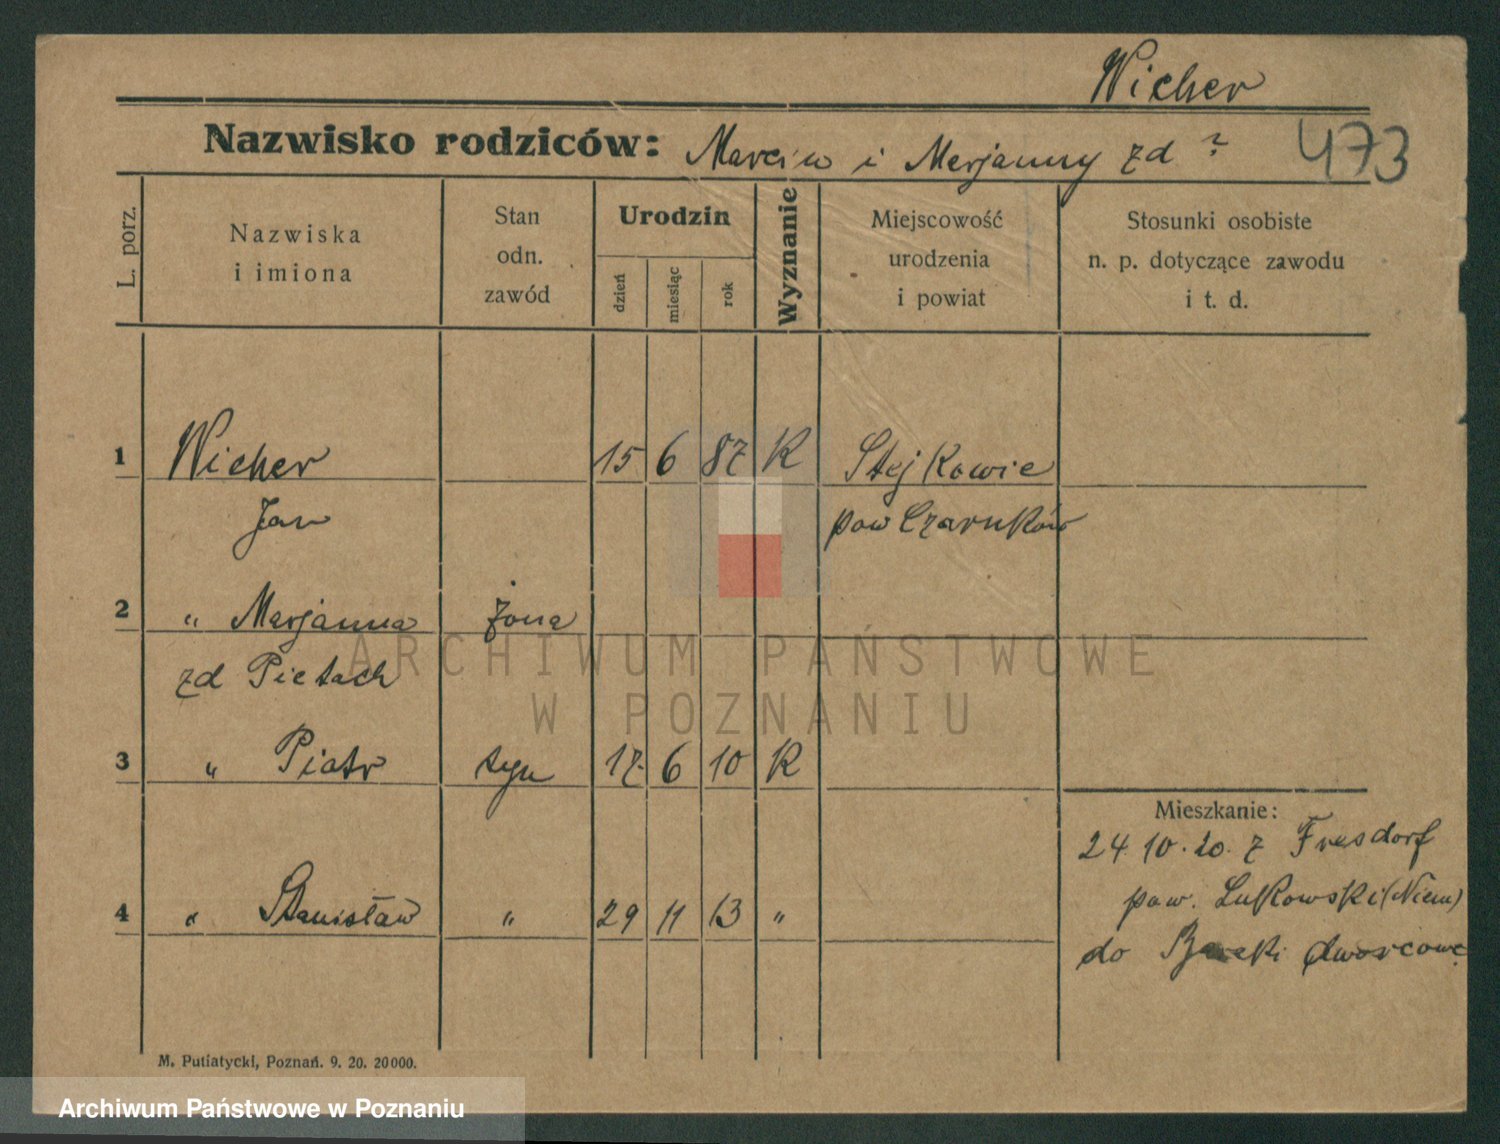 Wicher
Nazwisko rodziców: Marcin i Marjanny zd ?
473
L. porz.
Nazwiska
i imiona
Stan
odn.
zawód
Urodzin
dzień
miesiąc
rok
Wyznanie
Miejscowość
urodzenia
i powiat
Stosunki osobiste
n. p. dotyczące zawodu
i t. d.
1 Wicher 15 6 87 K Stejkowie
Jan pow Czarnków
2 " Marjanna żona
zd Pietach
3 " Piotr syn 17 6 10 K
Mieszkanie:
24.10.20. z Fresdorf
4 " Stanisław " 29 11 13 "
pow. Lukowski (Niem)
do Baraki dworcowe
M. Putiatycki, Poznań. 9. 20. 20000.
ARCHIWUM PAŃSTWOWE
W POZNANIU
Archiwum Państwowe w Poznaniu